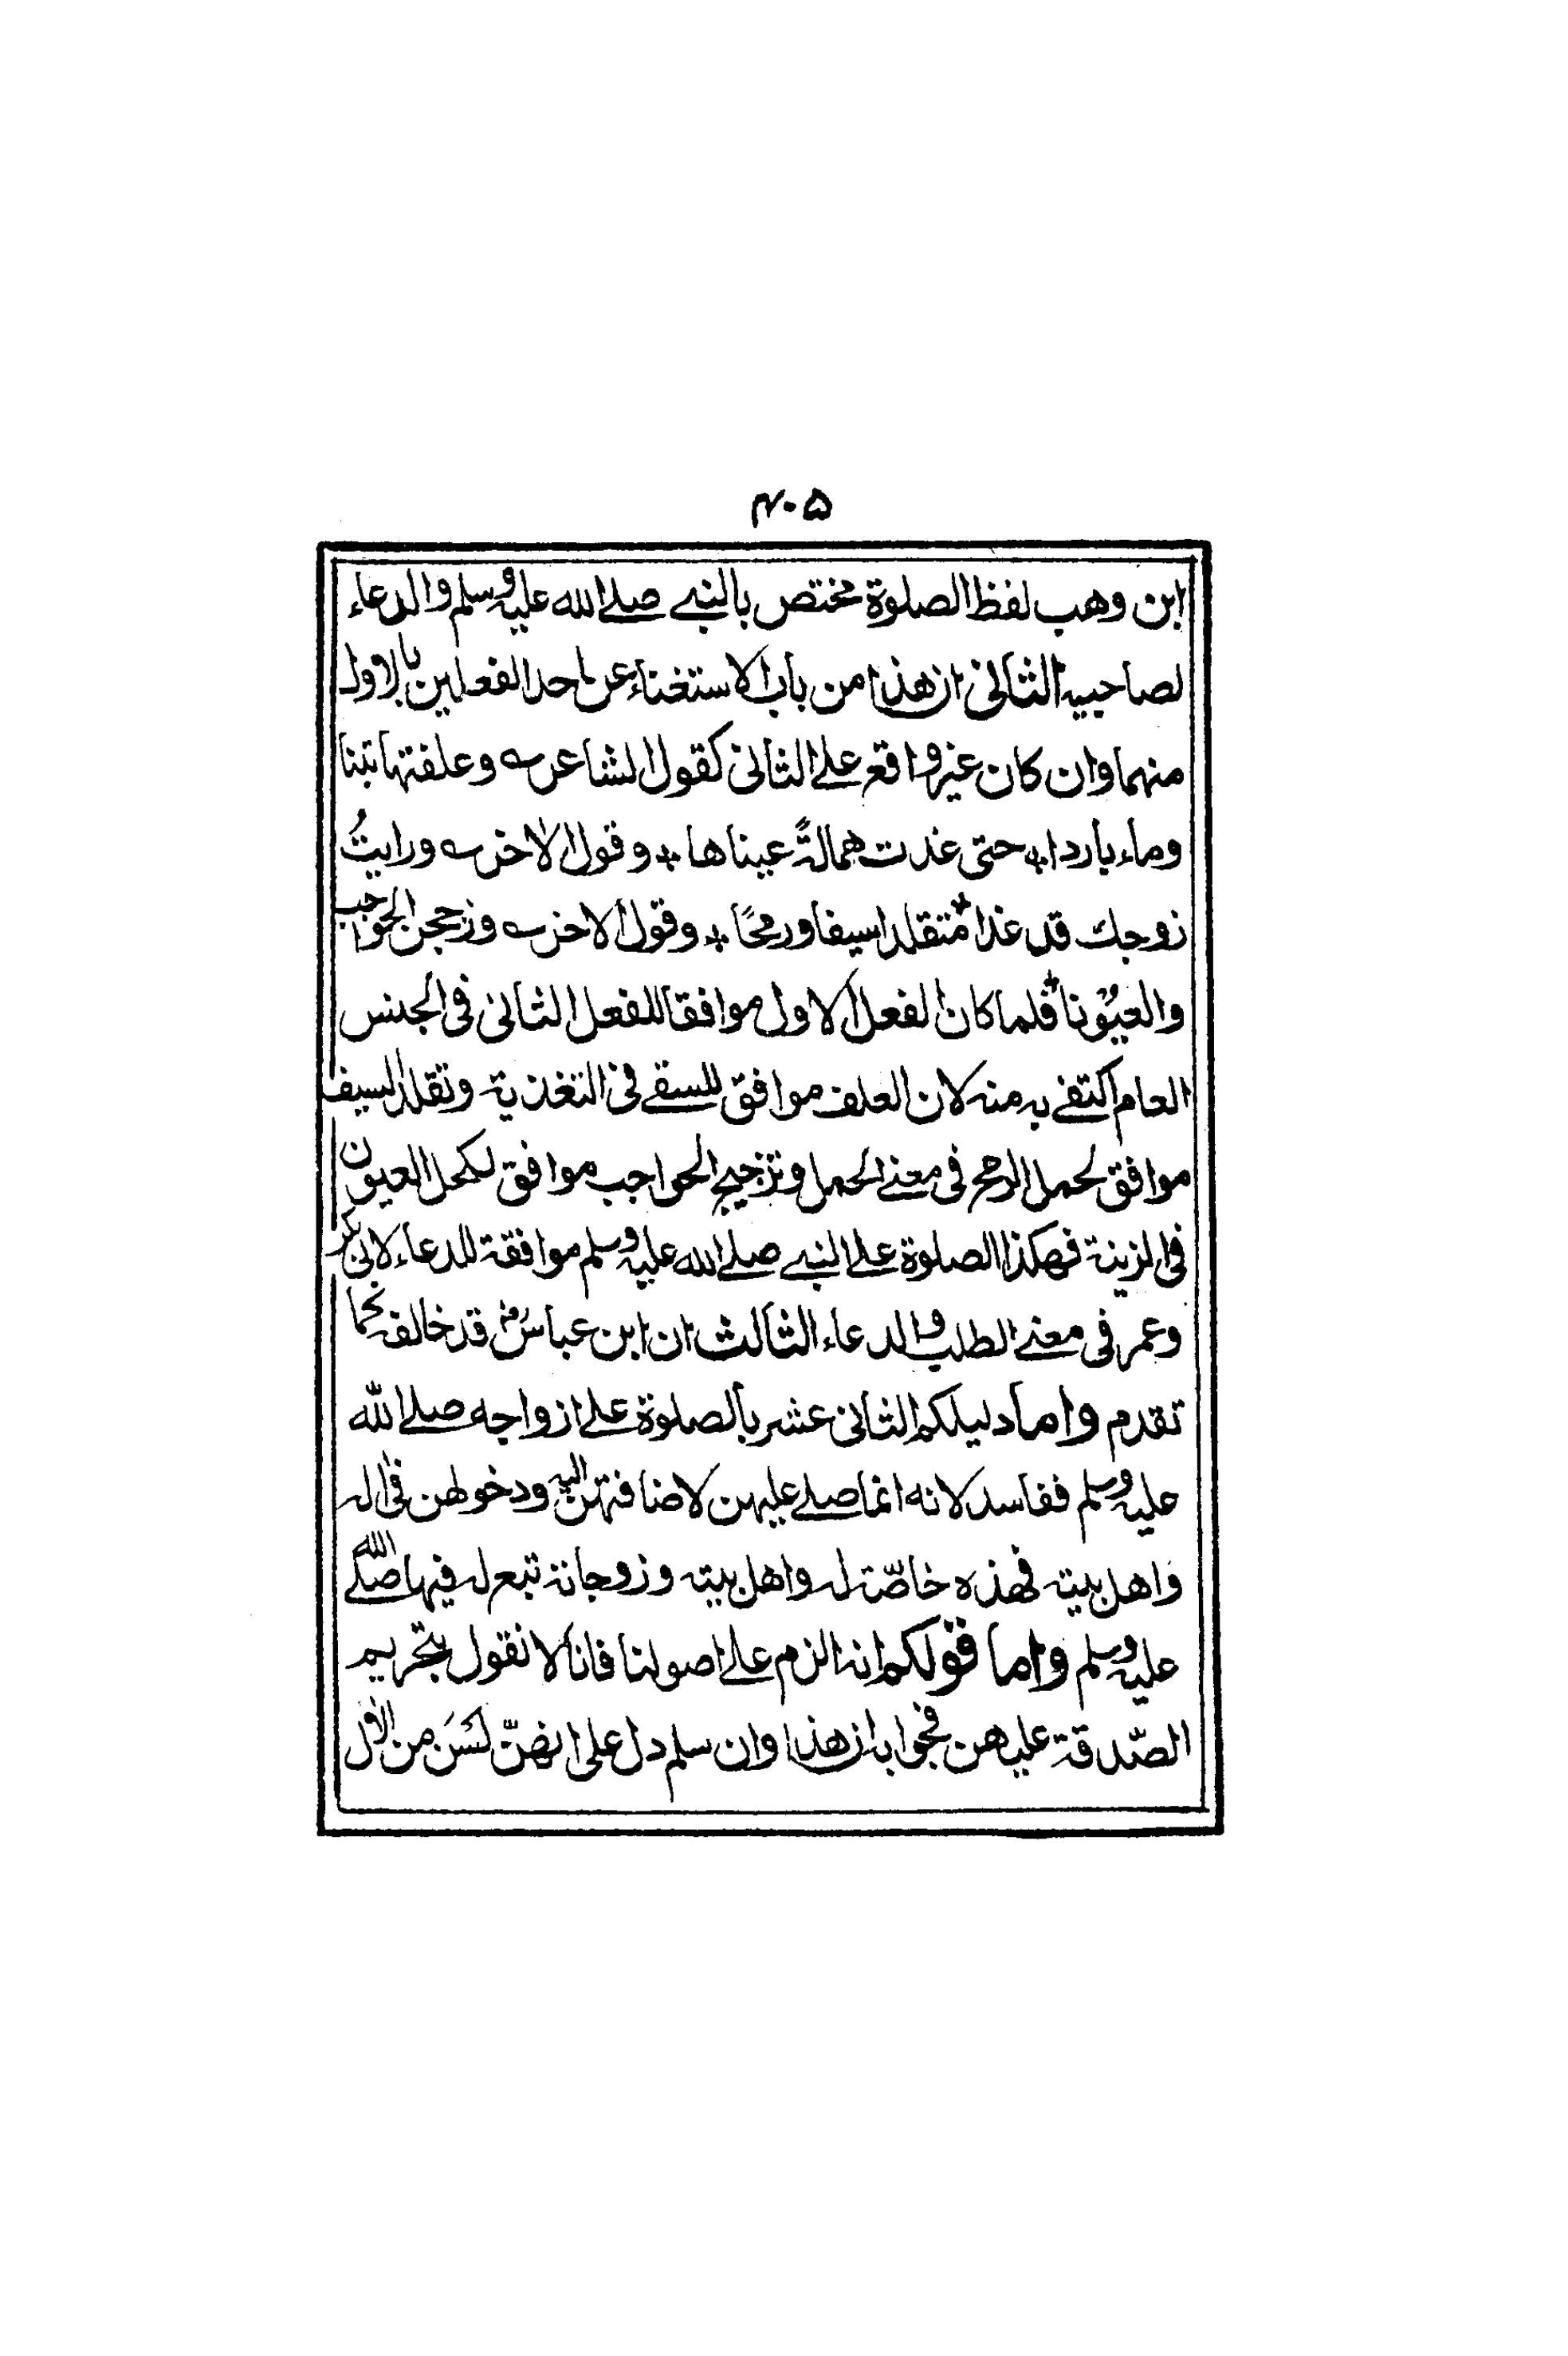 ۴۰۵
ابن وهب لفظ الصلوة مختص بالنبي صلے الله عليه وسلم والدعاء
لصاحبيه الثاني ان هذا من باب الاستغناء عن احد الفعلين بالاول
منهما وان كان غير واقع على الثاني كقول الشاعر ؎ وعلفتها تبنا
وماء باردا ٭ حتى غدت همالةً عيناها ٭ وقول الاخر ؎ ورايتُ
زوجك قد غدا ٭ متقلدا سيفا ورمحًا ٭ وقول الاخر ؎ وزججن الحواجب
والعيُونا ٭ فلما كان الفعل الاول موافقا للفعل الثاني في الجنس
العام اكتفى به منه لان العلف موافق للسقي في التغذية وتقلد السيف
موافق لحمل الرمح في معنى الحمل وتزجيج الحواجب موافق لكحل العيون
في الزينة فهكذا الصلوة على النبي صلے الله عليه وسلم موافقة للدعاء لابي بكر
وعمر في معنى الطلب والدعاء الثالث ان ابن عباسؓ قد خالفه كما
تقدم واما دليلكم الثاني عشر بالصلوة على ازواجه صلے الله
عليه وسلم ففاسد لانه انما صلے عليهن لاضافتهن اليه ودخولهن في اله
واهل بيته فهذه خاصّة له واهل بيته وزوجاته تبع له فيها صلے الله
عليه وسلم واما قولكم انه الزم على اصولنا فانا لا نقول بتحريم
الصّدقة عليهن فجوابه ان هذا وان سلم دل على انهنّ لسَن من الال